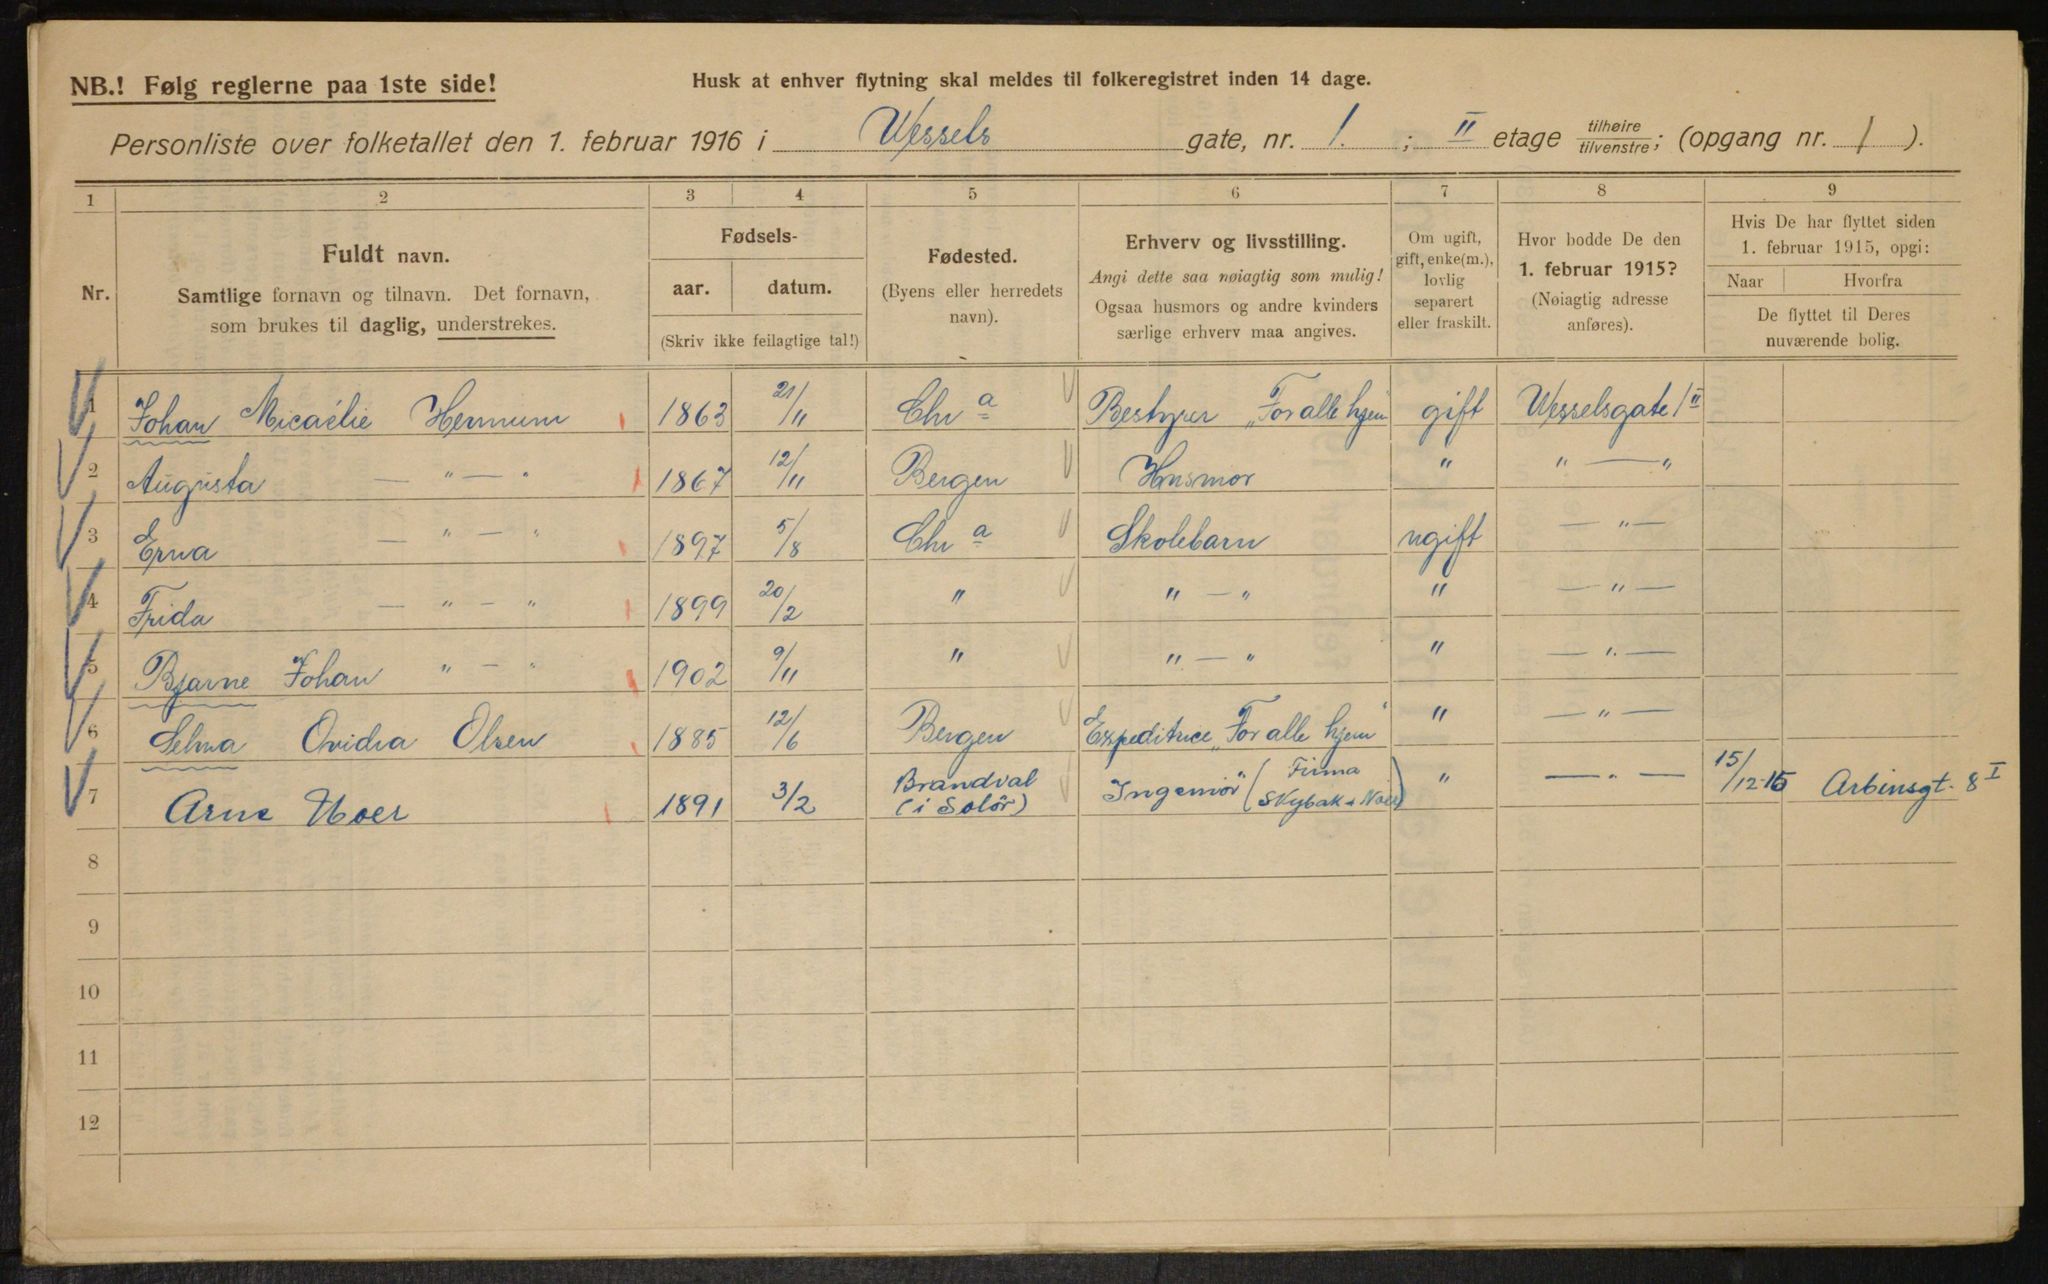 NB.! Følg reglerne paa 1ste side!
Husk at enhver flytning skal meldes til folkeregistret inden 14 dage.
Personliste over folketallet den 1. februar 1916 i Wessels gate, nr. 1. ; II etage tilhøire tilvenstre; (opgang nr. 1).
1 2 3 4 5 6 7 8 9
Nr.
Fuldt navn.
Samtlige fornavn og tilnavn. Det fornavn,
som brukes til daglig, understrekes.
Fødsels-
aar. datum.
(Skriv ikke feilagtige tal!)
Fødested.
(Byens eller herredets
navn).
Erhverv og livsstilling.
Angi dette saa nøiagtig som mulig!
Ogsaa husmors og andre kvinders
særlige erhverv maa angives.
Om ugift,
gift, enke(m.),
lovlig
separert
eller fraskilt.
Hvor bodde De den
1. februar 1915?
(Nøiagtig adresse
anføres).
Hvis De har flyttet siden
1. februar 1915, opgi:
Naar Hvorfra
De flyttet til Deres
nuværende bolig.
1 Johan Micaélie Hermum 1863 21/11 Chr a Bestyrer „For alle hjem gift Wesselsgate 1 II
2 Augusta — " — " 1867 12/11 Bergen Husmor " " — "
3 Erna — " — " 1897 5/8 Chr a Skolebarn ugift — " —
4 Frida — " — " 1899 20/2 " " — " " — " —
5 Bjarne Johan " — " 1902 9/11 " " — " " — " —
6 Selma Ovidia Olsen 1885 12/6 Bergen Expeditrice „For alle hjem" " — " —
7 Arne Noer 1891 3/2 Brandval (i Solör) Ingeniör (Firma Skybak & Noer) " — " — 15/12-15 Arbinsgt. 8 I
8
9
10
11
12